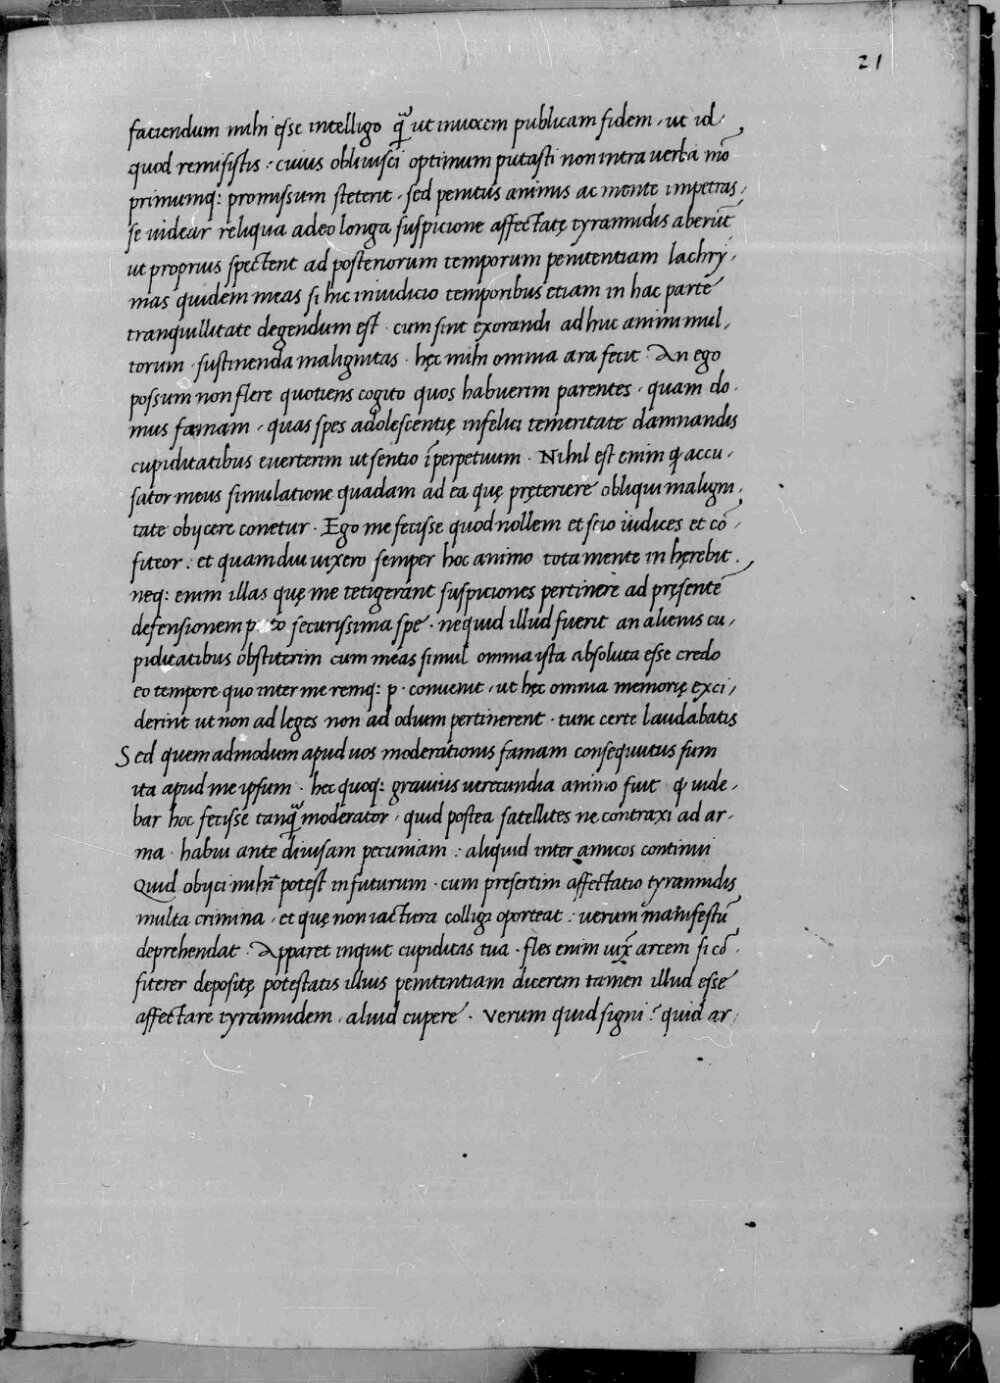 21
faciendum mihi esse intelligo q̃ ut inuocem publicam fidem, ut id
quod remisistis: cuius obliuisci optimum putasti non intra uerba mō,
primumq: promissum steterit, sed penitus animis ac mente impetras,
se uidear reliqua adeo longa suspicione affectatę tyrannidis aberūt
ut proprius spectent ad posteriorum temporum penitentiam lachry,
mas quidem meas si hic iniudicio temporibus etiam in hac parte
tranquillitate degendum est · cum sint exorandi ad huc animi mul,
torum · sustinenda malignitas · hęc mihi omnia ara fecit · An ego
possum non flere quotiens cogito quos habuerim parentes, quam do,
mus famam, quas spes adolescentię infelici temeritate damnandis
cupiditatibus euerterim ut sentio ĩperpetuum · Nihil est enim q̃ accu,
sator meus simulatione quadam ad ea quę pręteriere obliqui maligni,
tate obijcere conetur · Ego me fecisse quod nollem et scio iudices et cō,
fiteor: et quamdiu uixero semper hoc animo tota mente in hęrebit.
neq: enim illas quę me tetigerant suspiciones pertinere ad pręsentē,
defensionem p to securissima spe · nequid illud fuerit an alienis cu,
piditatibus obstiterim cum meas simul omnia ista absoluta esse credo
eo tempore quo inter me remq: p · conuenit, ut hęc omnia memorię exci,
derint ut non ad leges non ad odium pertinerent · tunc certe laudabatis
Sed quemadmodum apud uos moderationis famam consequutus sum
ita apud me ipsum · hec quoq: grauius uerecundia animo fuit q̃ uide,
bar hoc fecisse tanq̃ moderator, quid postea satellites ne contraxi ad ar,
ma · habui ante diuisam pecuniam: aliquid inter amicos continui
Quid obijci mihi potest infuturum · cum presertim affectatio tyrannidis
multa crimina, et quę non iactura colligi oporteat: uerum manifestū
deprehendat · Apparet inquit cupiditas tua · fles enim uix̃ arcem si cō,
fiterer depositę potestatis illius penitentiam dicerem tamen illud esse
affectare tyrannidem, aliud cupere · Verum quid signi? quid ar,